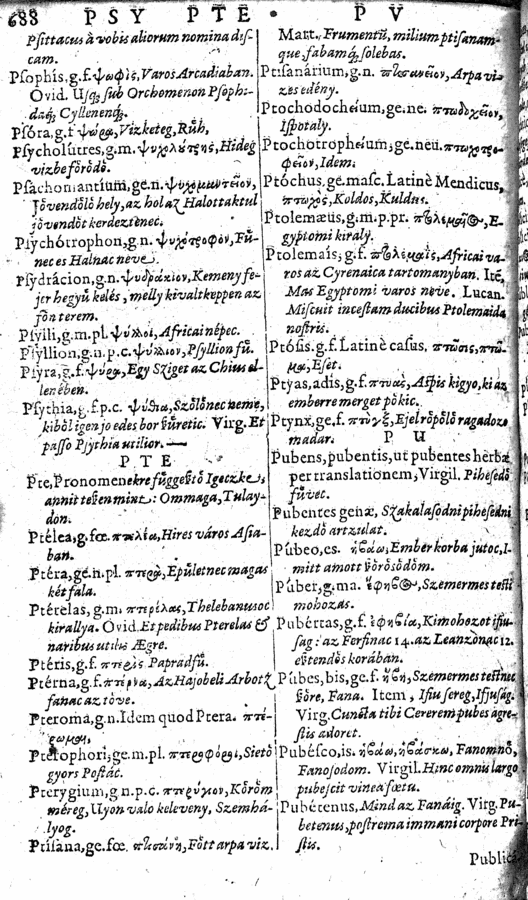 688 PSY PTE. PU
Psittacus à vobis aliorum nomina dis-
cam.
Psophís, g.f. ψωφὶς, Varos Arcadiaban.
Ovid. Usq; sub Orchomenon Psophi-
daq; Cyllenenq;.
Psóra, g.f ψώρα, Vizketeg, Růh,
Psycholútres, g.m. ψυχλούτρης, Hideg
vizbe fὅrὅdὅ.
Psachomantíum, ge.n. ψυχομαντεῖον,
Jὅvendὅlὅ hely, az hol az Halottaktul
jὅvendὅt kerdeztenec.
Psychótrophon, g.n. ψυχότροφον, Fů-
nec es Halnac neve.
Psydrácion, g.n. ψυδράκιον, Kemeny fe-
jer hegyů kelés, melly kivaltkeppen az
fὅn terem.
Psylli, g.m.pl. ψύλλοι, Africai népec.
Psyllion, g.n.p.c. ψύλλιον, Psyllion fů.
Psyra, g.f. ψύρα, Egy Sziget az Chius el-
lenében.
Psythia, g.f.p.c. ψύθια, Szὅlὅnec neme,
kibὅl igen jo edes bor řůretic. Virg. Et
passo Psythia utilior.
PTE
Pte, Pronomenekre fůggesztὅ Igeczke,
annit teszen mint: Ommaga, Tulay-
don.
Ptélea, g.fœ. πτελέα, Hires város Asia-
ban.
Ptéra, ge.n.pl. πτερὰ, Epůletnec magas
két fala.
Ptérelas, g.m. πτερέλας, Thelebanusoc
kirallya. Ovid. Et pedibus Pterelas &
naribus utilis Ægre.
Ptéris, g.f. πτερὶς Papradfů.
Ptérna, g.f. πτέρνα, Az Hajobeli Arbotz
fanac az tὅve.
Pteroma, g.n. Idem quod Ptera. πτέ-
ρωμα,
Pterophori, ge.m.pl. πτεροφόροι, Sietὅ
gyors Postác.
Pterygium, g.n.p.c. πτερύγιον, Kὅrὅm
méreg, Uyon valo keleveny, Szemhá-
lyog.
Ptísana, ge.fœ. πτισάνη, Fὅtt arpa viz.
Mart. Frumentů, milium ptisanam-
que, fabamq; solebas.
Ptisanárium, g.n. Arpa vi-
zes edény.
Ptochodochéium, ge.ne. πτωχοδοχεῖον,
Ispotaly.
Ptochotrophéum, ge.neu. πτωχοτρο-
φεῖον, Idem.
Ptóchus, ge.masc. Latinè Mendicus,
πτωχὸς, Koldos, Kuldus.
Ptolemæus, g.m.p.pr. πτολεμαῖος, E-
gyptomi kiraly.
Ptolemais, g.f. πτολεμαῒς, Africai va-
ros az Cyrenaica tartomanyban. Itě,
Mas Egyptomi varos neve. Lucan.
Miscuit incestam ducibus Ptolemaida
nostris.
Ptósis, g.f. Latinè casus, πτῶσις, πτῶ-
μα, Eset.
Ptyas, adis, g.f. πτυὰς, Aspis kigyo, ki az
emberre merget pὅkic.
Ptynx, ge.f. πτυγξ, Ejel rὅpὅlὅ ragadozo
madar.
PU
Pubens, pubentis, ut pubentes herbæ
per translationem, Virgil. Pihesedὅ
fůvec.
Pubentes genæ, Szakalasodni pihesedni
kezdὅ artzulat.
Púbeo, es. ἡβάω, Ember korba jutoc, l-
mitt amott szὅrὅsὅdὅm.
Púber, g.ma. ἔφηβος, Szemermes testi
mohozas.
Pubértas, g.f. ἐφηβεία, Ki mohozot ifiu-
sag: az Ferfinac 14. az Leanzὅnac 12.
esztendὅs korában.
Púbes, bis, ge.f. ἥβη, Szemermes testnec
szὅre, Fana. Item, Ifiu sereg, Ifjuság.
Virg. Cuncta tibi Cererem pubes agre-
stis adoret.
Pubésco, is. ἡβάω, ἡβάσκω, Fanomnὅ,
Fanosodom. Virgil. Hinc omnis largo
pubescit vinea fœtu.
Pubétenus, Mind az Fanáig. Virg. Pu-
betenus, postrema immani corpore Pri-
stis.
Publicá-